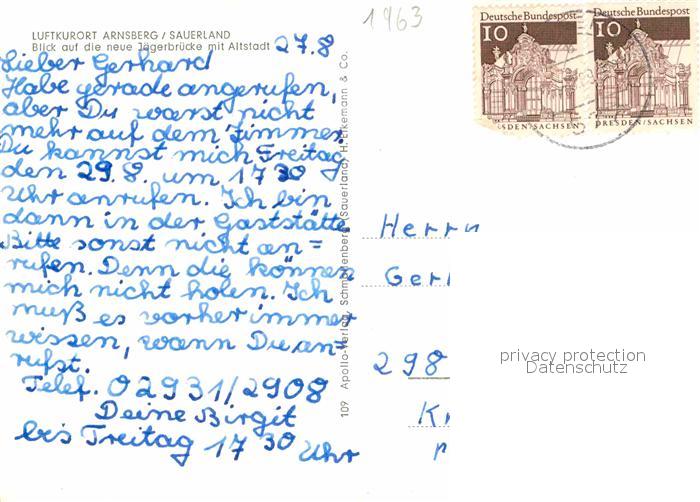 1963
LUFTKURORT ARNSBERG / SAUERLAND
Blick auf die neue Jägerbrücke mit Altstadt
27.8
Lieber Gerhard
Habe gerade angerufen,
aber Du warst nicht
mehr auf dem Zimmer
Du kannst mich Freitag
den 29.8. um 17 30
Uhr anrufen. Ich bin
dann in der Gaststätte
Bitte sonst nicht an=
rufen. Denn die können
mich nicht holen. Ich
muß es vorher immer
wissen, wann Du an=
rufst.
Telef. 02931/2908
Deine Birgit
bis Freitag 17 30 Uhr
109 Apollo-Verlag, Schmallenberg (Sauerland),
Deutsche Bundespost
10
DRESDEN/SACHSEN
Deutsche Bundespost
10
DRESDEN/SACHSEN
Herrn
Gerl
298
Kr
privacy protection
Datenschutz